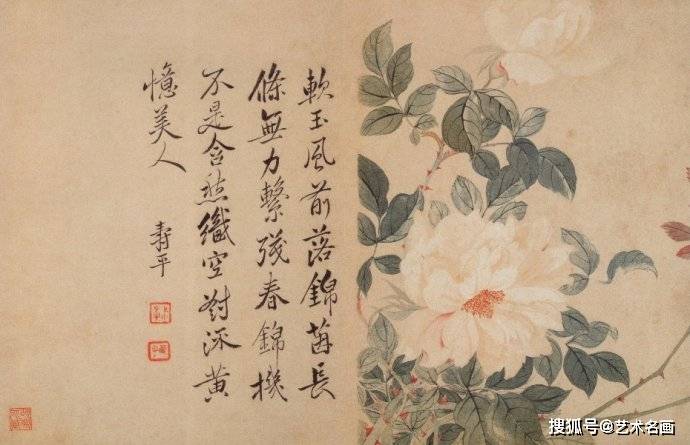 軟玉風前落錦茵長
條無力繫殘春錦機
不是含愁織空對流黃
憶美人 壽平
搜狐号@艺术名画